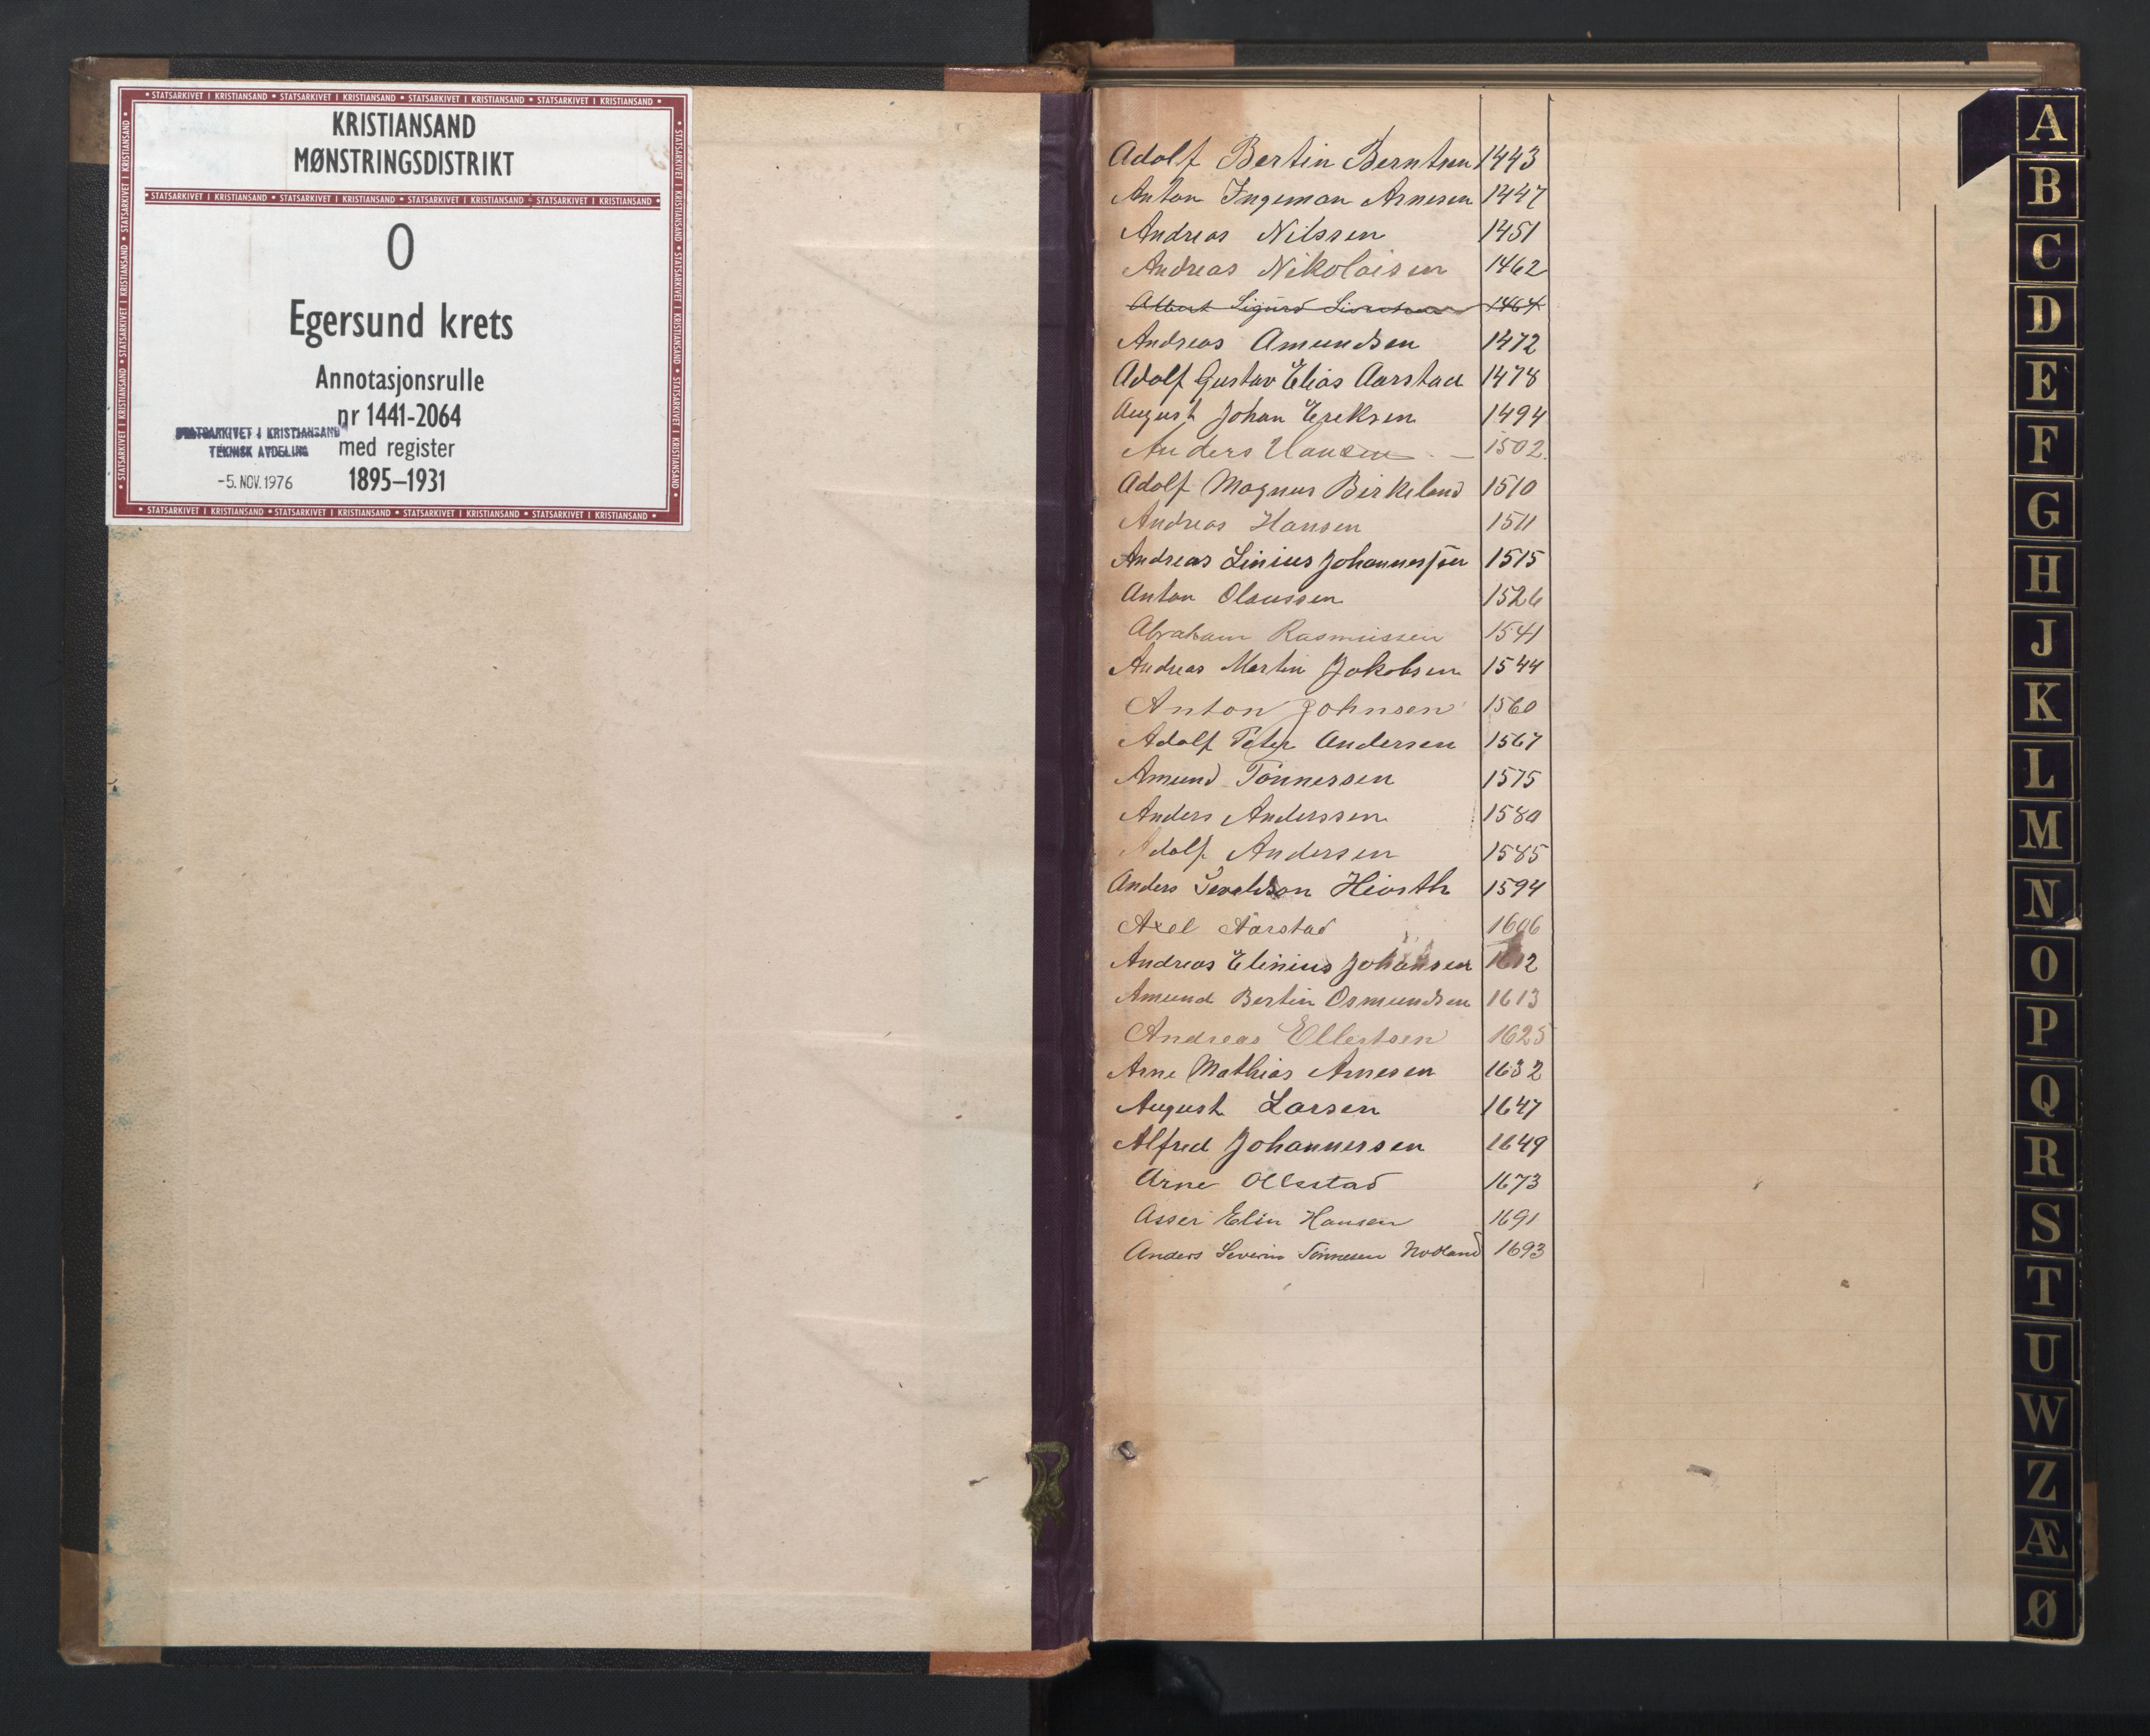 KRISTIANSAND
MØNSTRINGSDISTRIKT
0
Egersund krets
Annotasjonsrulle
nr 1441-2064
med register
1895–1931
STATSARKIVET I KRISTIANSAND
TEKNISK AVDELING
-5. NOV. 1976
Adolf Bertin Berntsen 1443
Anton Ingeman Arnesen 1447
Andreas Nilssen 1451
Andreas Nikolaisen 1462
Albert Sigurd 1464
Andreas Amundsen 1472
Adolf Gustav Elias Aarstad 1478
August Johan Eriksen 1494
Anders Hansen 1502.
Adolf Magnus Birkeland 1510
Andreas Hansen 1511
Andreas Linius Johannessen 1515
Anton Olaussen 1526
Abraham Rasmussen 1541
Andreas Martin Jakobsen 1544
Anton Johnsen 1560
Adolf Peter Andersen 1567
Amund Tönnessen 1575
Anders Anderssen 1580
Adolf Andersen 1585
Anders Hiorth 1594
Axel Aarstad 1606
Andreas Elinius Johansen 1612
Amund Bertin Osmundsen 1613
Andreas Ellertsen 1625
Arne Mathias Arnesen 1632
August Larsen 1647
Alfred Johannessen 1649
Arne Ollestad 1673
Asser Elin Hansen 1691
Anders Severin Tönnesen Nodland 1693
A
B
C
D
E
F
G
H
J
K
L
M
N
O
P
Q
R
S
T
U
W
Z
Æ
Ø